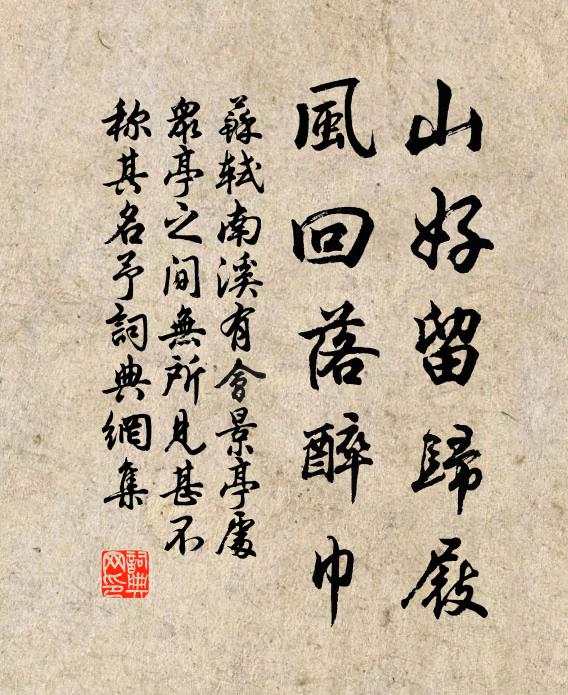 山好留歸屐
風回落醉巾
蘇軾南溪有會景亭處
眾亭之間無所見甚不
稱其名予詞典網集
詞典網印